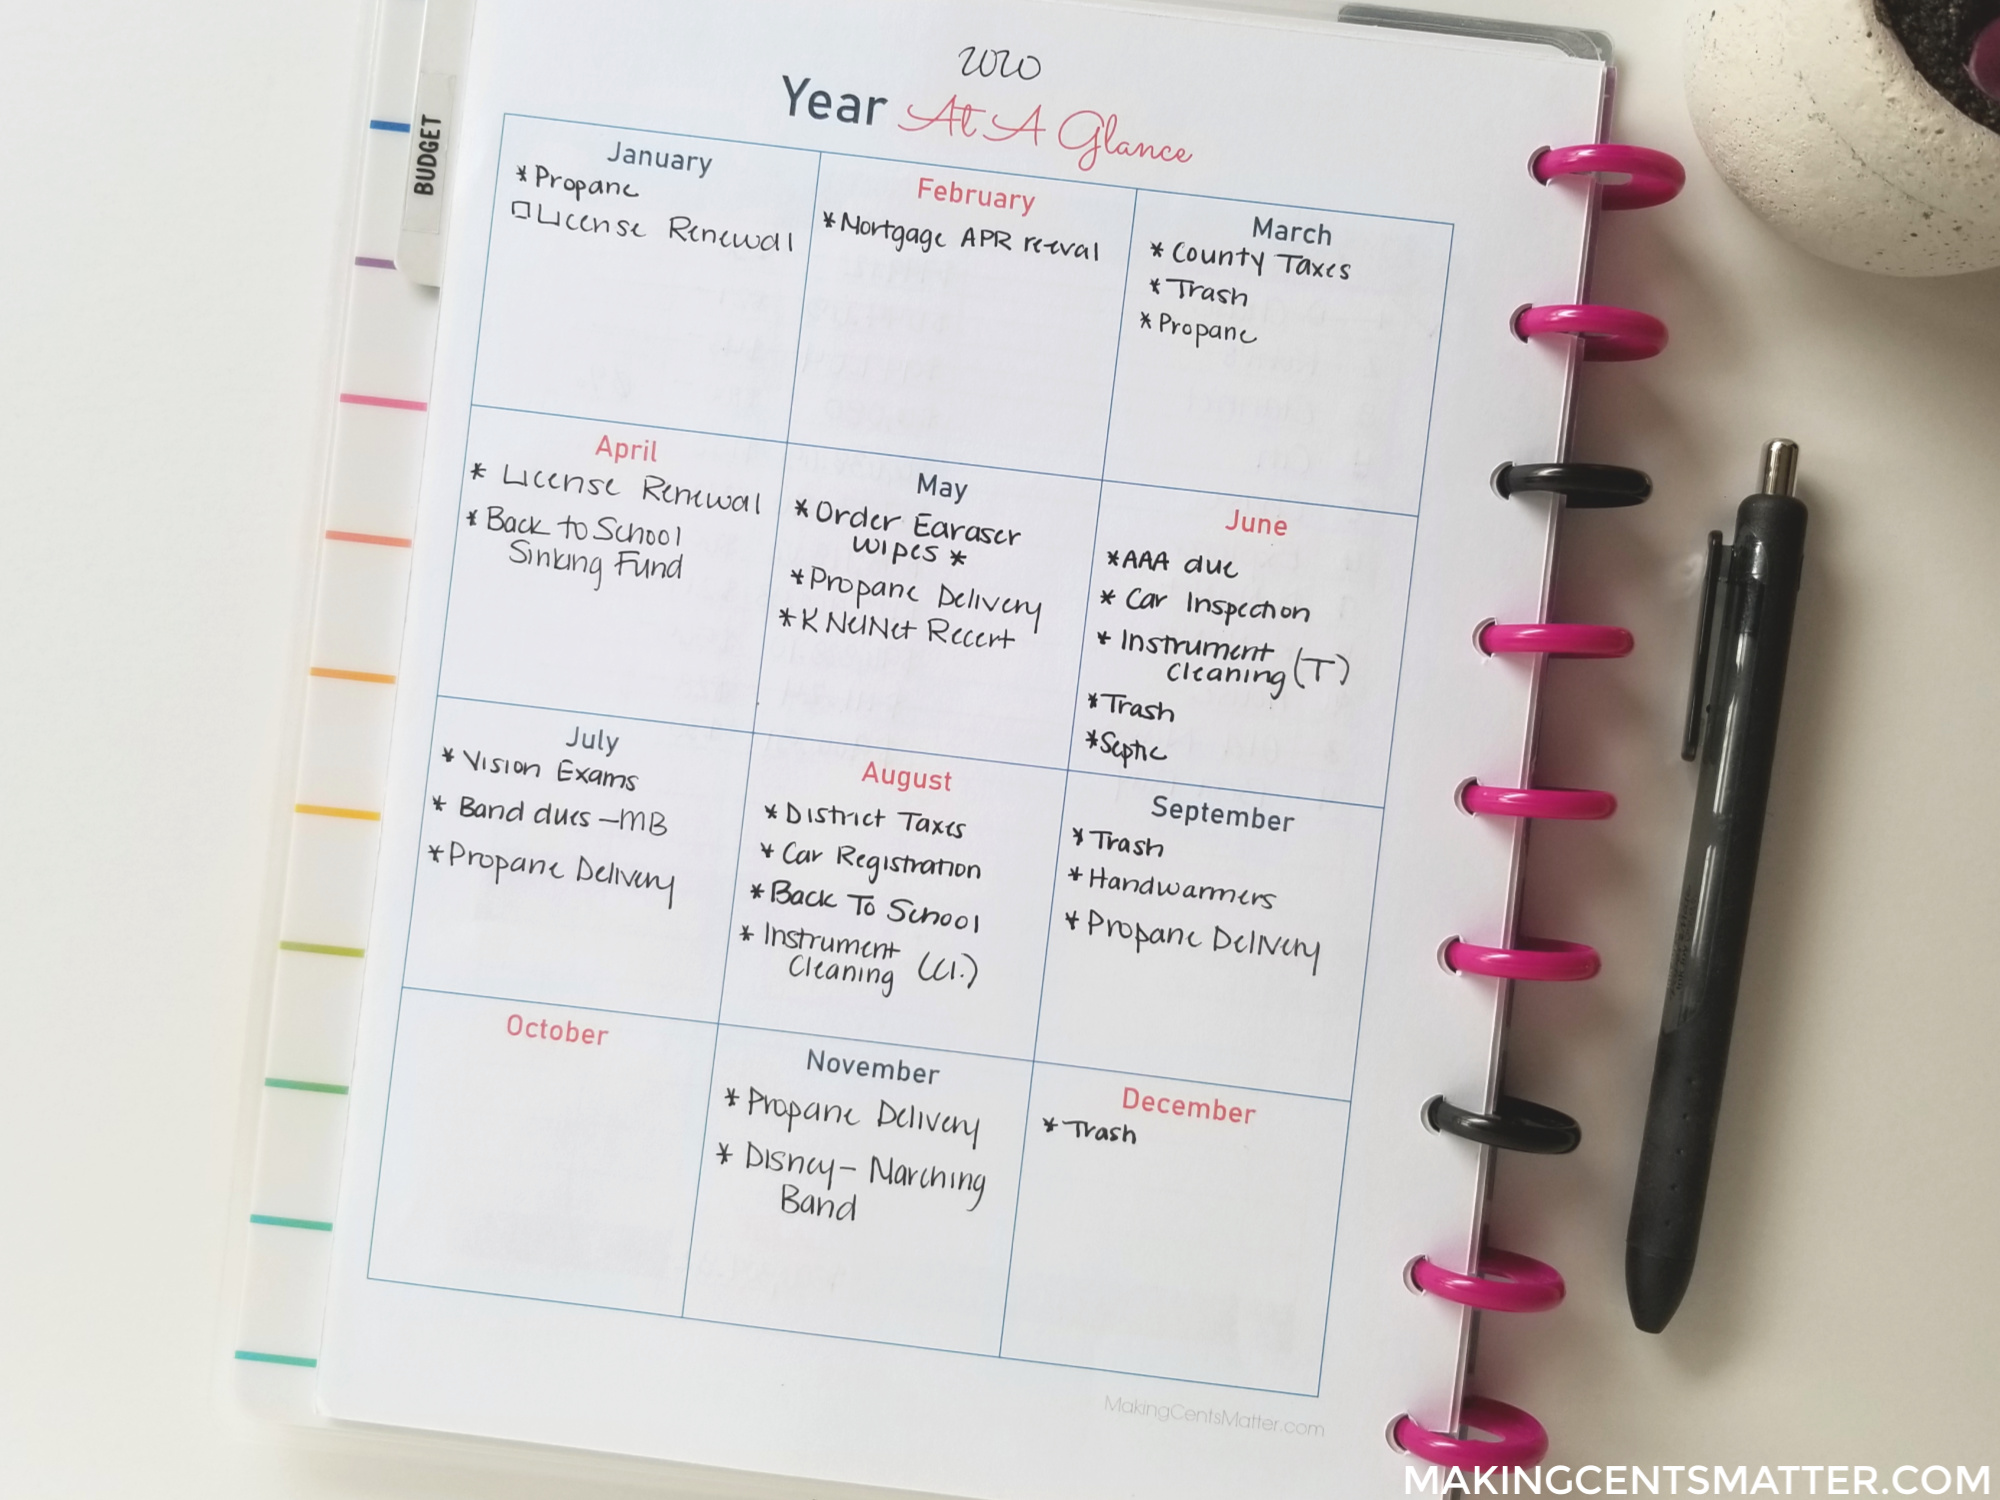 2020
Year At A Glance
BUDGET
January
* Propane
License Renewal
February
* Mortgage APR reeval
March
* County Taxes
* Trash
* Propane
April
* License Renewal
* Back to School
Sinking Fund
May
* Order Earaser
wipes *
* Propane Delivery
* K NelNet Recert
June
* AAA due
* Car Inspection
* Instrument
Cleaning (T)
* Trash
* Septic
July
* Vision Exams
* Band dues - MB
* Propane Delivery
August
* District Taxes
* Car Registration
* Back To School
* Instrument
Cleaning (Cl.)
September
* Trash
* Handwarmers
* Propane Delivery
October
November
* Propane Delivery
* Disney - Marching
Band
December
* Trash
MakingCentsMatter.com
MAKINGCENTSMATTER.COM